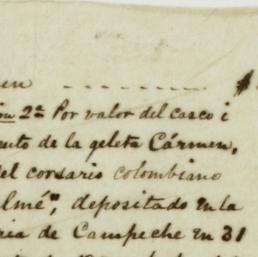 en ---------- $
on 2ª Por valor del casco i
ento de la goleta Cármen,
el corsario colombiano
almé", depositado en la
ria de Campeche en 31